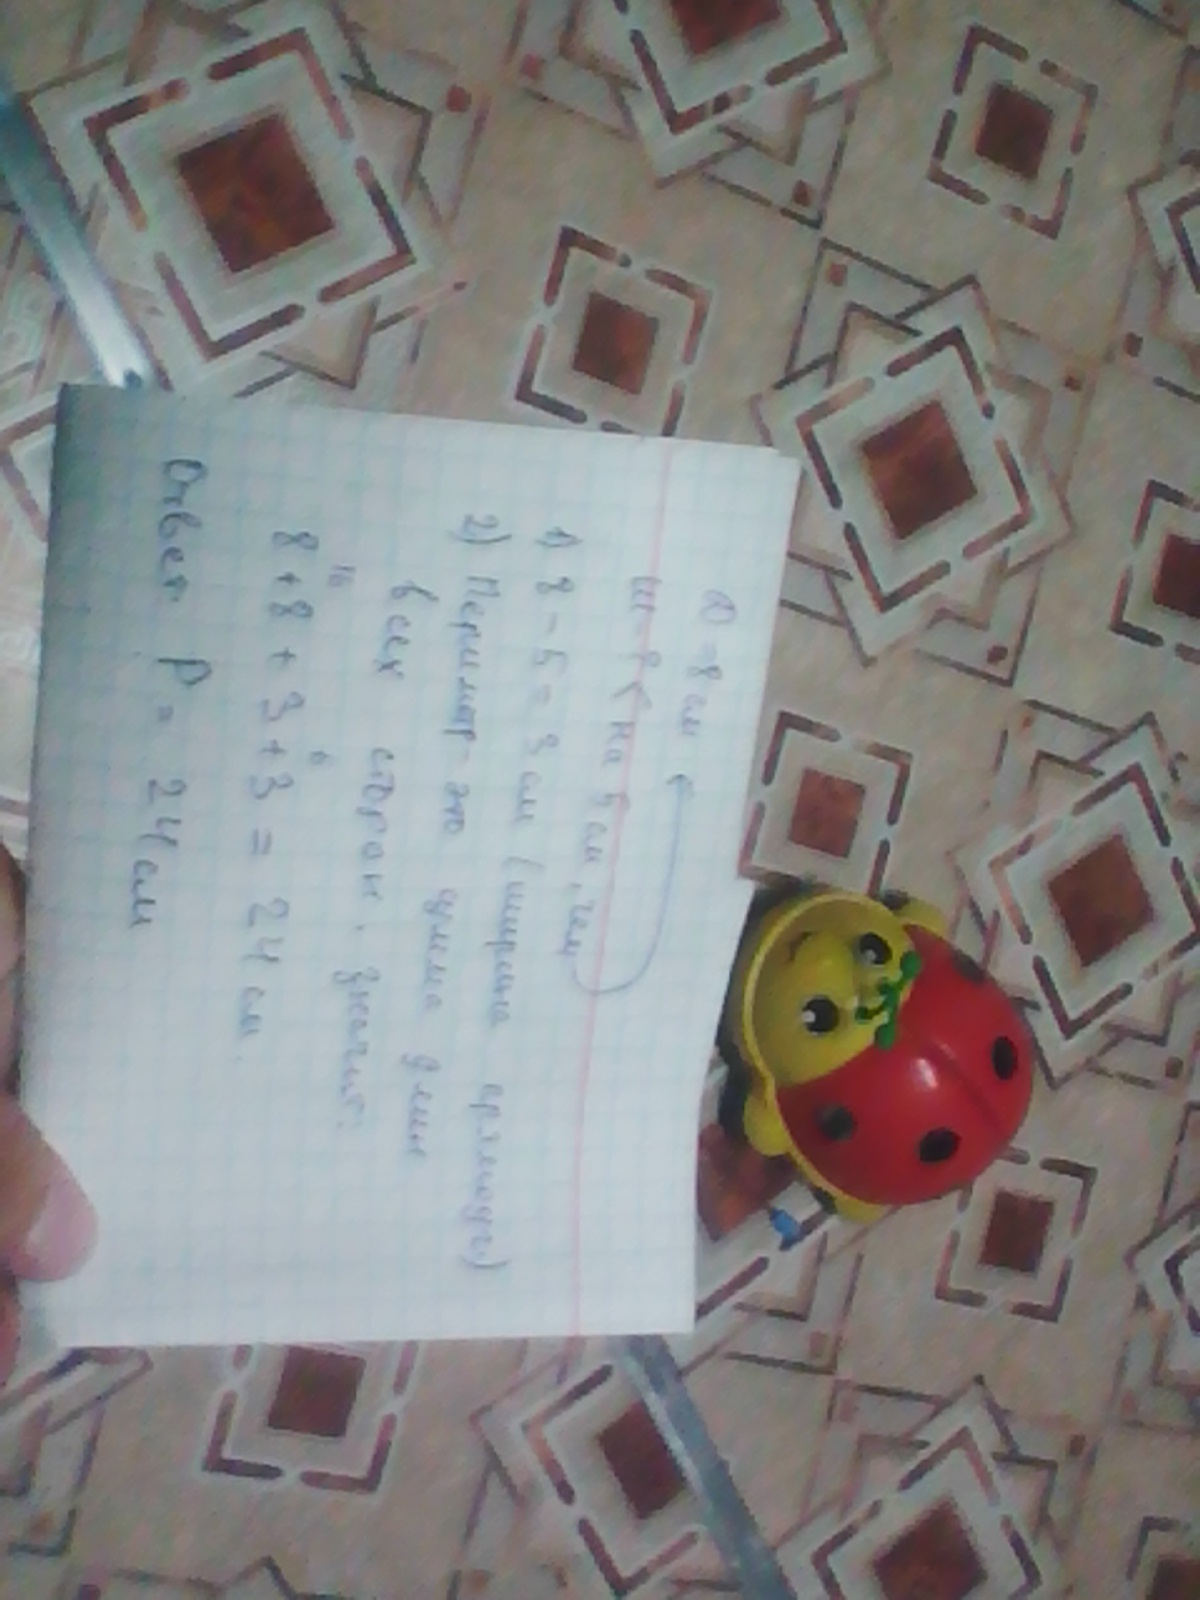 Д - 8 см
Ш - ? < на 5 см, чем
1) 8 - 5 = 3 см (ширина прямоуг.)
2) Периметр это сумма длин
всех сторон. Значит:
16 6
8 + 8 + 3 + 3 = 24 см.
Ответ P = 24 см